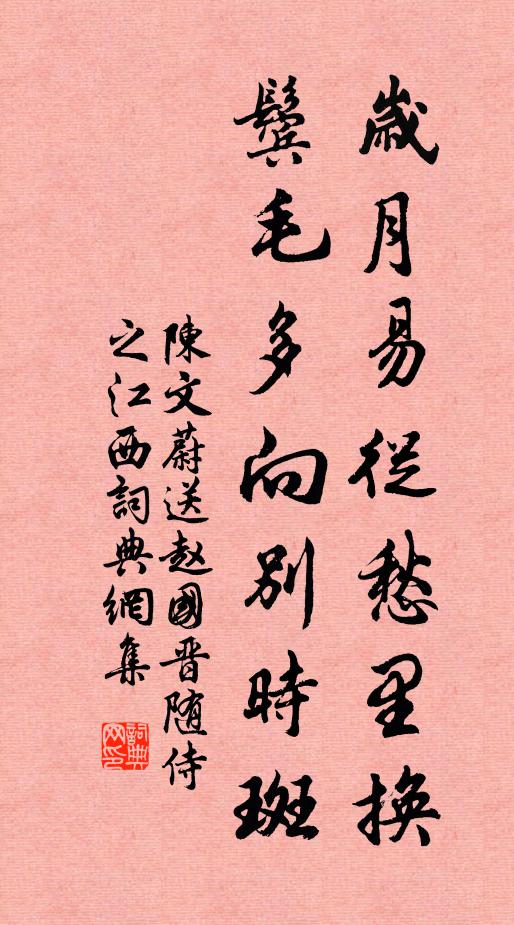 歲月易從愁里換
鬓毛多向別時斑
陳文蔚送赵國晋随侍
之江西詞典網集
詞典
网印